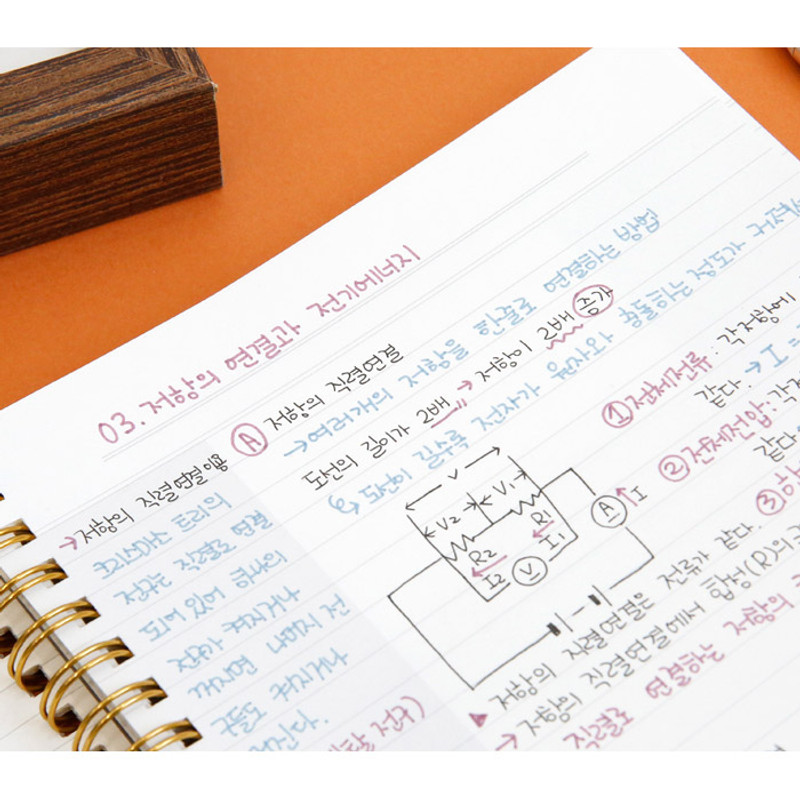 03. 저항의 연결과 전기에너지
Ⓐ 저항의 직렬연결
→ 여러개의 저항을 한줄로 연결하는 방법
도선의 길이가 2배 → 저항이 2배 증가
↳ 도선이 길수록 전자가 원자와 충돌하는 정도가
→ 저항의 직렬연결 이용
크리스마스 트리의
전구는 직렬로 연결
되어 있어 하나의
전구가 켜지거나
꺼지면 나머지 전
구들도 켜지거나
V
V2 V1
R2 R1
I2 I1
V
A
I
① 전체전류 : 각 저항에
같다. → I =
② 전체전압 : 각
같다
③
▶ 저항의 직렬연결은 전류가 같다.
→ 저항의 직렬연결에서 합성(R)의
직렬로 연결하는 저항의
전구)